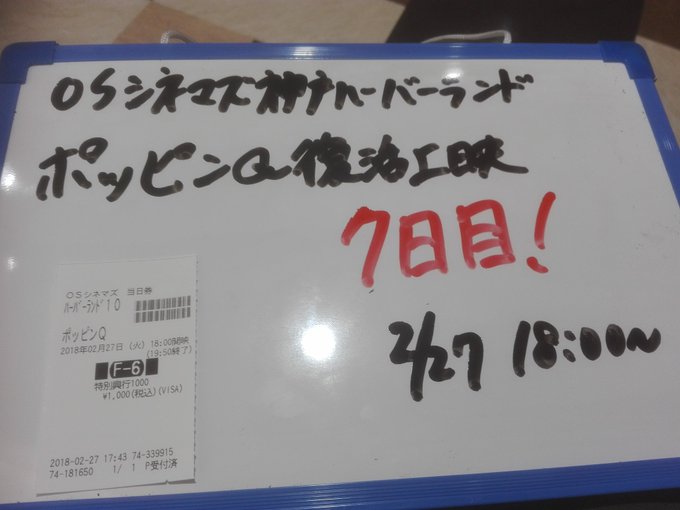 OSシネマズ神戸ハーバーランド
ポッピンQ復活上映
7日目!
2/27 18:00〜
OSシネマズ 当日券
ハーバーランド10
ポッピンQ
2018年02月27日 (火) 18:00開映
(19:50終了)
F-6
特別興行1000
¥1,000(税込)(VISA)
2018-02-27 17:43 74-339915
74-181650 1/ 1 P受付済